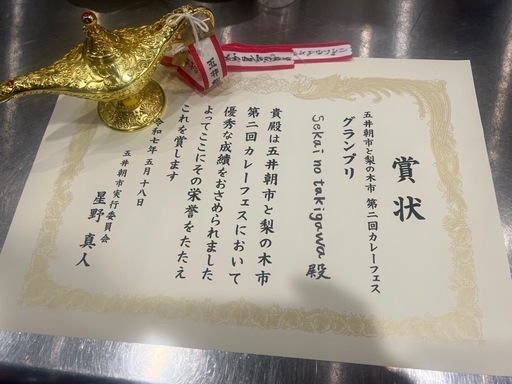 賞状
五井朝市と梨の木市 第二回カレーフェス
グランプリ
Sekai no takigawa 殿
貴殿は五井朝市と梨の木市
第二回カレーフェスにおいて
優秀な成績をおさめられました
よってここにその栄誉をたたえ
これを賞します
令和七年五月十八日
五井朝市実行委員会
星野 真人